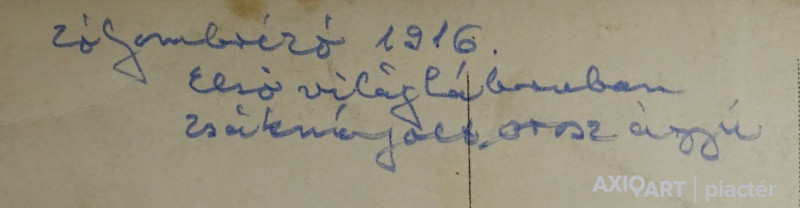 1916.
Első világháboruban
zsákmányolt orosz ágyú
AXIOART | piactér